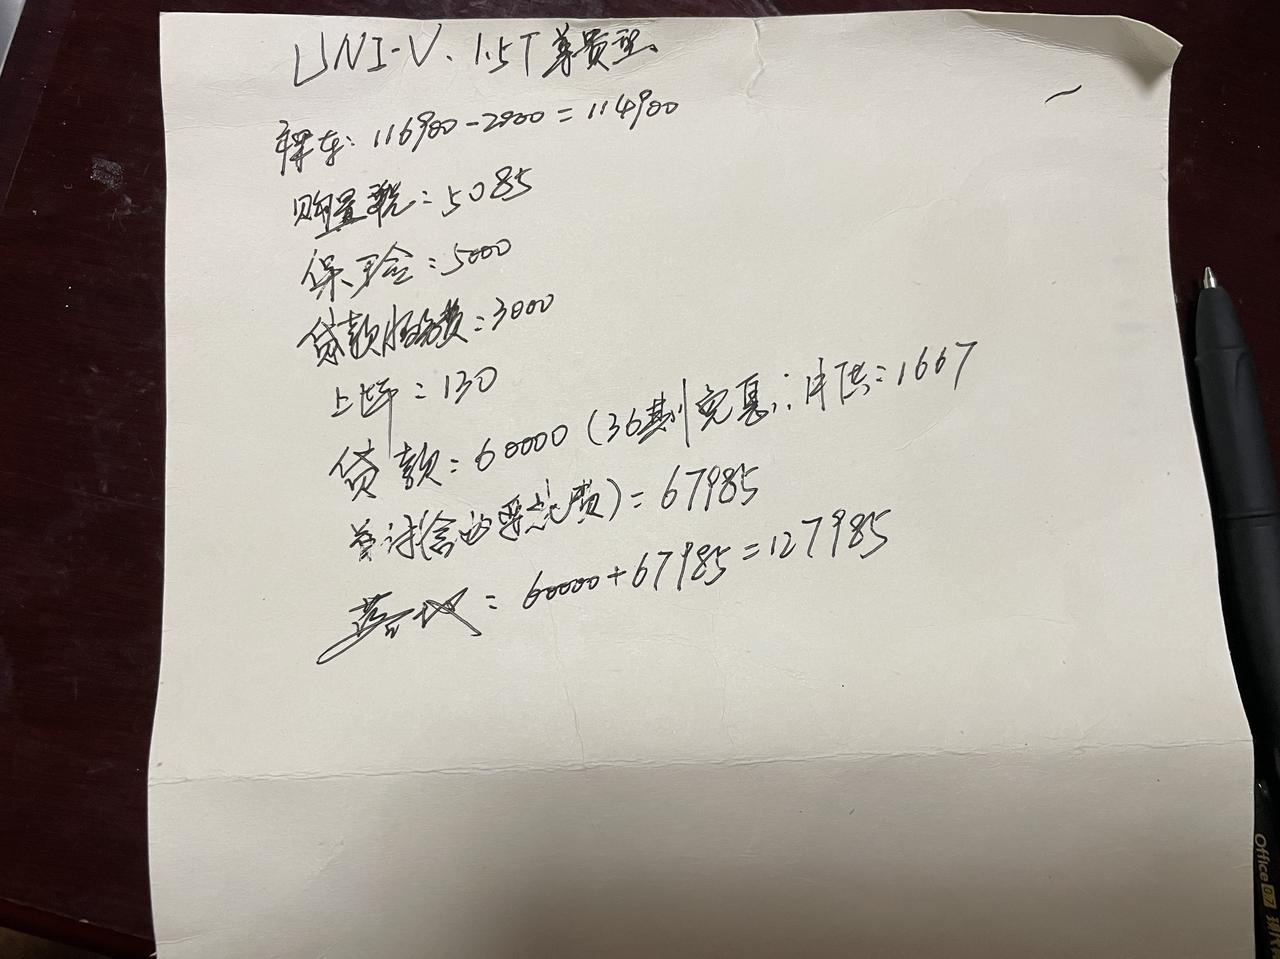 UNI-V、1.5T尊贵型
裸车:116900-2000=114900
购置税:5085
保险:5000
贷款服务费:3000
上牌:130
贷款:60000(36期免息;月供:1667
首付(含的要花费)=67985
落地:60000+67985=127985
Office 0.7